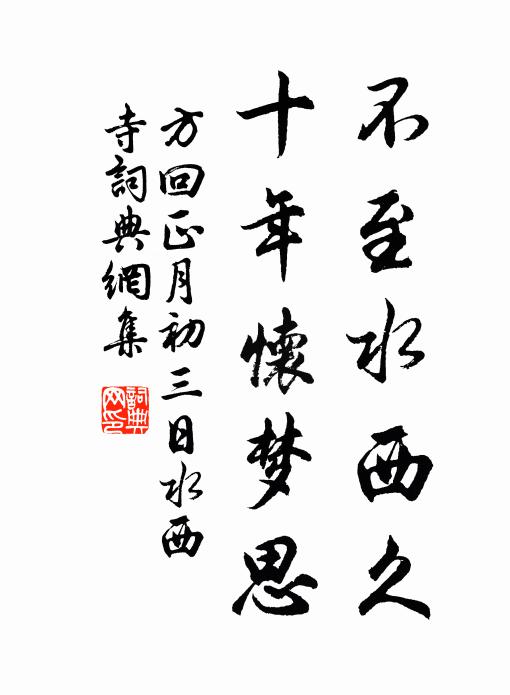 不至水西久
十年懷梦思
方回正月初三日水西
寺詞典網集
詞典
网印